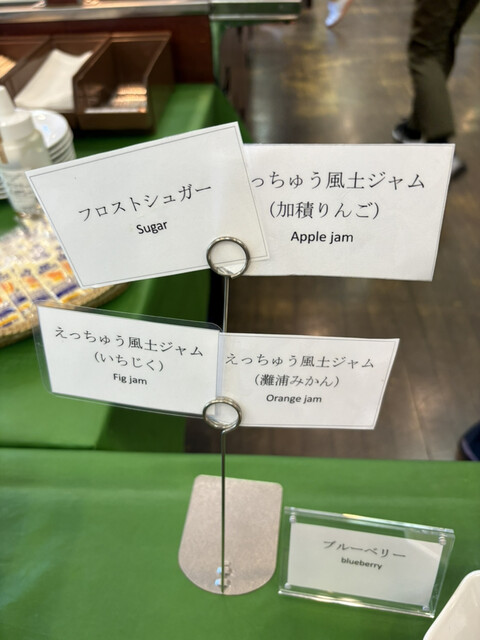 フロストシュガー
Sugar
っちゅう風土ジャム
(加積りんご)
Apple jam
えっちゅう風土ジャム
(いちじく)
Fig jam
えっちゅう風土ジャム
(灘浦みかん)
Orange jam
ブルーベリー
blueberry